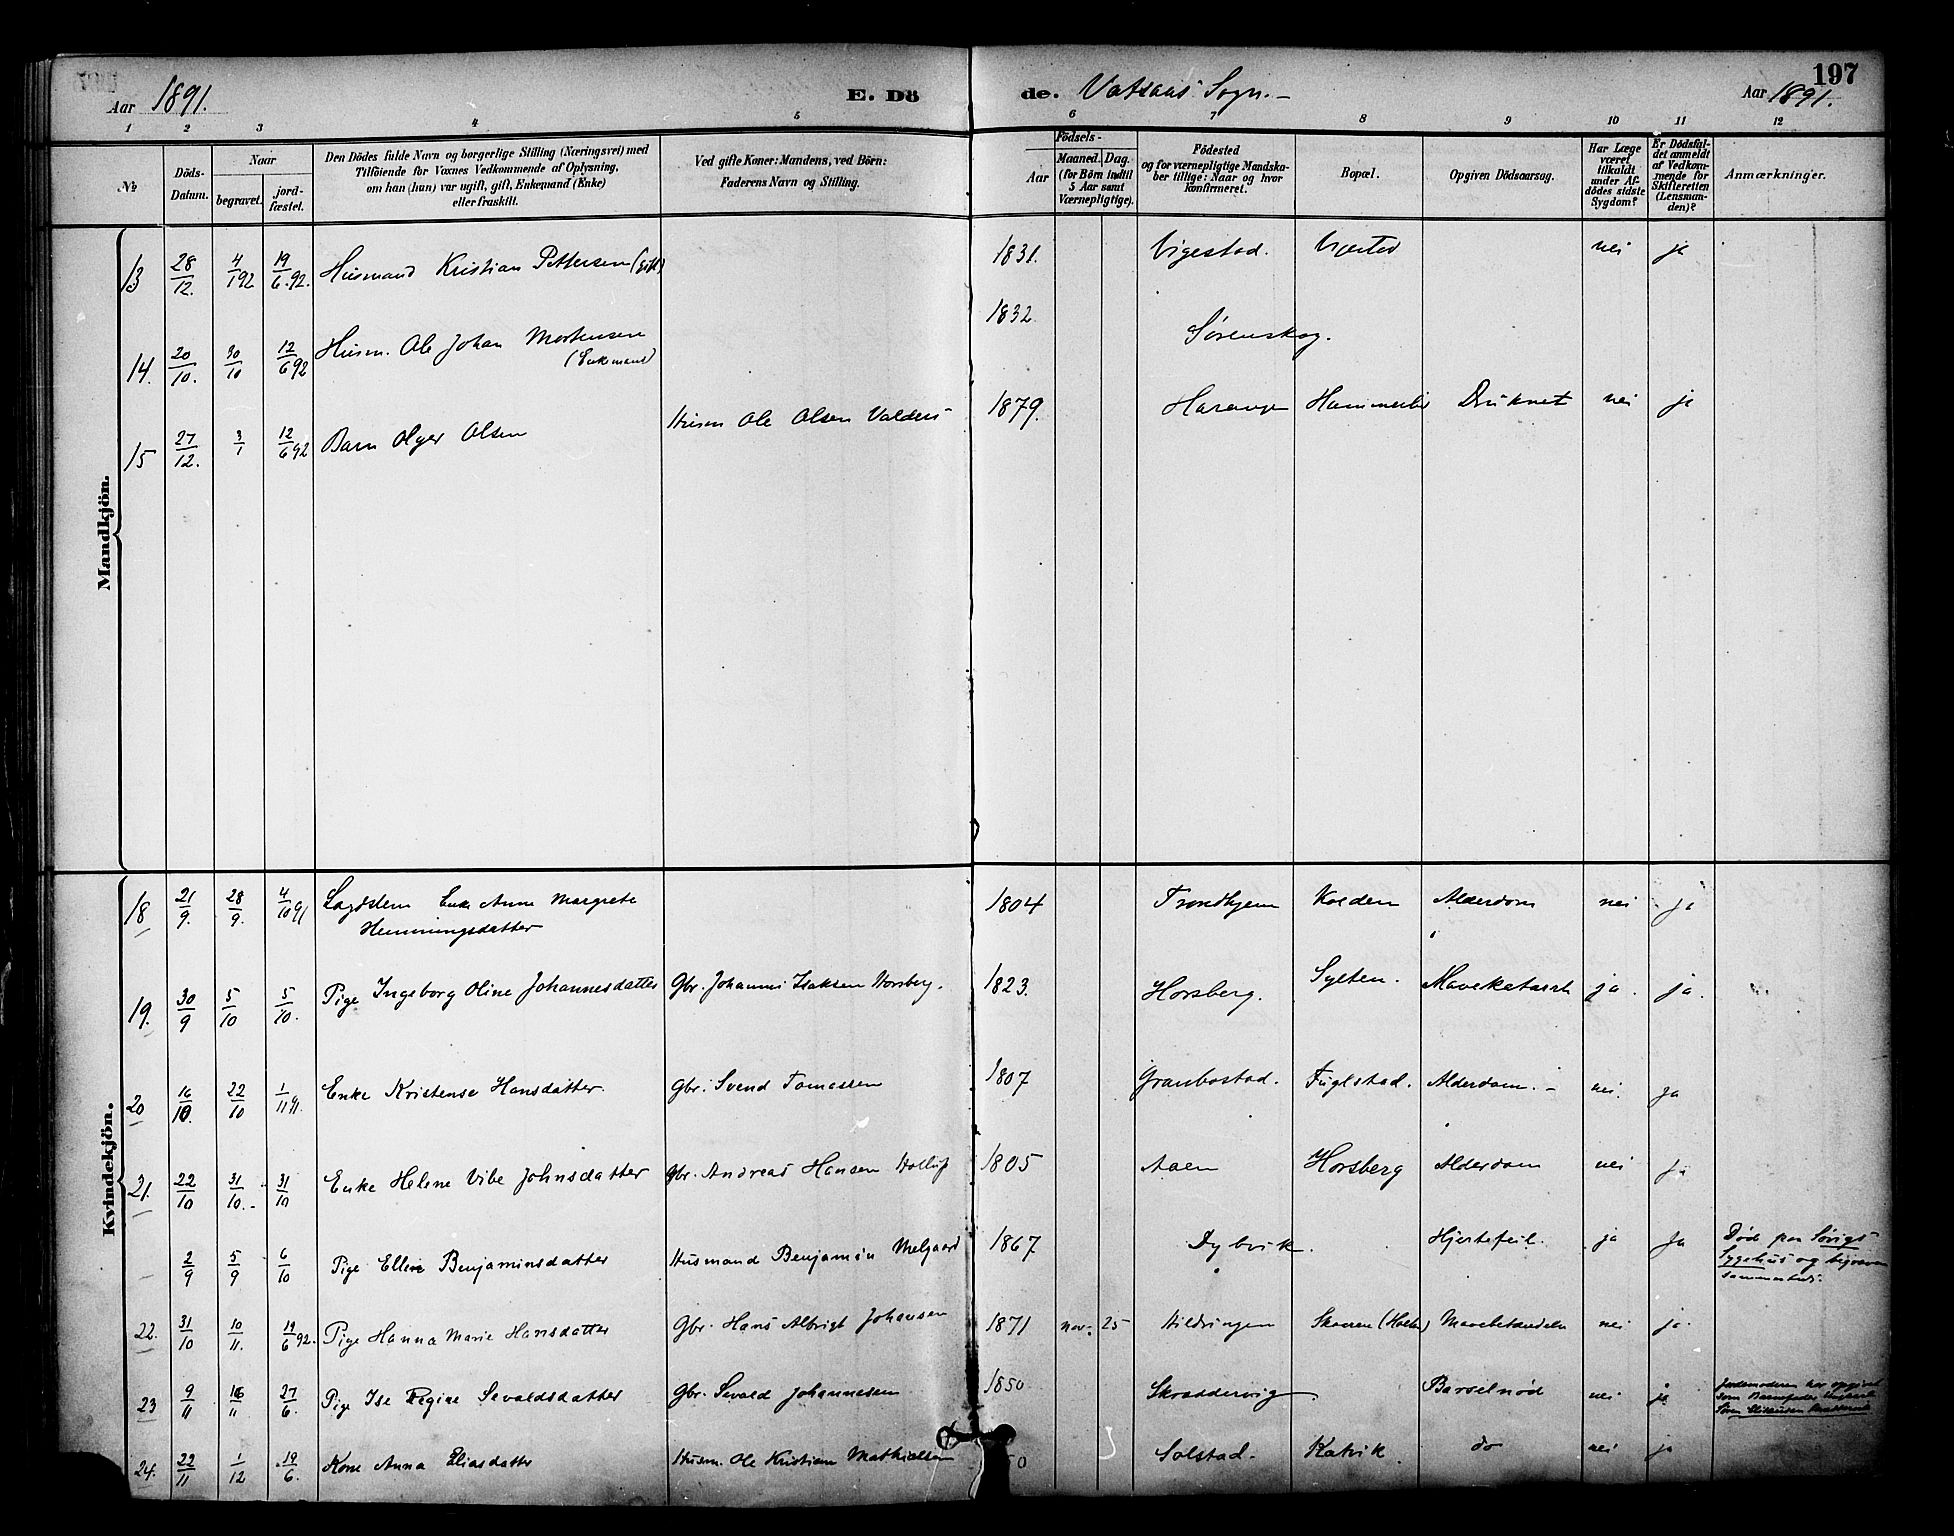 197
Aar 1891. E. Dö de. Vatsaas Sogn. Aar 1891.
1 2 3 4 5 6 7 8 9 10 11 12
№
Döds-
Datum.
Naar
begravet.
jord-
fæstet.
Den Dödes fulde Navn og borgerlige Stilling (Næringsvei) med
Tilföiende for Voxnes Vedkommende af Oplysning,
om han (hun) var ugift, gift, Enkemand (Enke)
eller fraskilt.
Ved gifte Koner: Mandens, ved Börn:
Faderens Navn og Stilling.
Födsels-
Aar
Maaned. Dag.
(for Börn indtil
5 Aar samt
Værnepligtige).
Födested
og for værnepligtige Mandska-
ber tillige: Naar og hvor
konfirmeret.
Bopæl.
Opgiven Dödsaarsag.
Har Læge
været
tilkaldt
under Af-
dödes sidste
Sygdom?
Er Dödsfal-
det anmeldt
af Vedkom-
mende for
Skifteretten
(Lensman-
den)?
Anmærkninger.
Mandkjön.
13 28/12. 4/1 92 19/6.92. Husmand Kristian Pettersen (gift) 1831. Vigestad. nei ja
14. 20/10. 30/10 12/6 92 Husm. Ole Johan Mortensen 1832. Sørenskog.
(Enkemand)
15 27/12. 3/1 12/6 92 Barn Olger Olsen Husm Ole Olsen Valders 1879. Hammerlia Druknet nei ja
Kvindekjön.
18 21/9. 28/9. 4/10 91 Lægdslem Enke Anne Margrete 1804 Trondhjem Kolden Alderdom nei ja
Hemmingsdatter
19. 30/9 5/10 5/10. Pige Ingeborg Oline Johannesdatter Gbr. Johannes Isaksen Horsberg. 1823. Horsberg. Sylten. Mavekatarrh ja. ja.
20 16/10. 22/10 1/11 91. Enke Kristense Hansdatter Gbr. Svend Tomassen 1807 Granbostad. Fuglstad. Alderdom. nei. ja
21. 22/10 31/10. 31/10 Enke Helene Vibe Johnsdatter Gbr. Andreas Hansen Hollup 1805 Aaen Horsberg Alderdom nei ja
2/9 5/9 6/10 Pige Elline Benjaminsdatter Husmand Benjamin Melgaard 1867 Dybvik. Hjertefeil. ja ja Død paa Søvigs
Sygehus og begraven
sammesteds.
22. 31/10 10/11. 19/6 92. Pige Hanna Marie Hansdatter Gbr. Hans Albrigt Johansen 1871 nov. 25 Hildringen nei ja.
23 9/11 16/11 27/6. Pige Ise Regine Sevaldsdatter Gbr. Sevald Johannesen 1850 Skraddervig Barselnød nei ja Jordemoderen har opgivet
som Barnefader Ungkarl
24. 22/11 1/12 19/6. Kone Anna Eliasdatter Husm. Ole Kristian Mathielsen 50 Solstad. Kalvik do nei ja